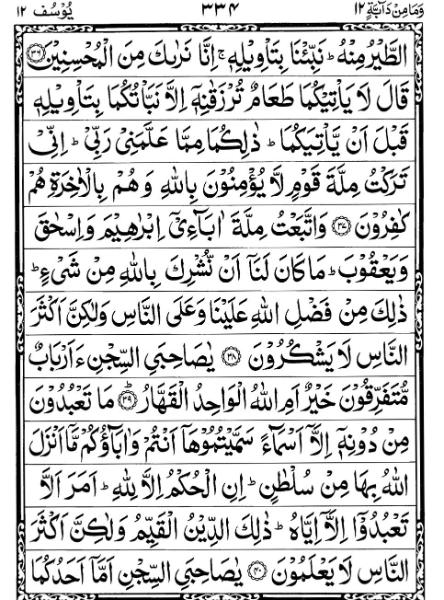 وَمَا مِنْ دَآبَّةٍ ١٢ ٣٣٤ يُوْسُف ١٢
الطَّيْرُ مِنْهُ ؕ نَبِّئْنَا بِتَاْوِيْلِهٖ ۚ اِنَّا نَرٰىكَ مِنَ الْمُحْسِنِيْنَ ﴿۳۶﴾
قَالَ لَا يَاْتِيْكُمَا طَعَامٌ تُرْزَقٰنِهٖۤ اِلَّا نَبَّاْتُكُمَا بِتَاْوِيْلِهٖ
قَبْلَ اَنْ يَّاْتِيَكُمَا ؕ ذٰلِكُمَا مِمَّا عَلَّمَنِيْ رَبِّيْ ؕ اِنِّيْ
تَرَكْتُ مِلَّةَ قَوْمٍ لَّا يُؤْمِنُوْنَ بِاللّٰهِ وَهُمْ بِالْاٰخِرَةِ هُمْ
كٰفِرُوْنَ ﴿۳۷﴾ وَاتَّبَعْتُ مِلَّةَ اٰبَآءِيْۤ اِبْرٰهِيْمَ وَاِسْحٰقَ
وَيَعْقُوْبَ ؕ مَا كَانَ لَنَاۤ اَنْ نُّشْرِكَ بِاللّٰهِ مِنْ شَيْءٍ ؕ
ذٰلِكَ مِنْ فَضْلِ اللّٰهِ عَلَيْنَا وَعَلَى النَّاسِ وَلٰكِنَّ اَكْثَرَ
النَّاسِ لَا يَشْكُرُوْنَ ﴿۳۸﴾ يٰصَاحِبَيِ السِّجْنِ ءَاَرْبَابٌ
مُّتَفَرِّقُوْنَ خَيْرٌ اَمِ اللّٰهُ الْوَاحِدُ الْقَهَّارُ ﴿۳۹﴾ مَا تَعْبُدُوْنَ
مِنْ دُوْنِهٖۤ اِلَّاۤ اَسْمَآءً سَمَّيْتُمُوْهَاۤ اَنْتُمْ وَاٰبَآؤُكُمْ مَّاۤ اَنْزَلَ
اللّٰهُ بِهَا مِنْ سُلْطٰنٍ ؕ اِنِ الْحُكْمُ اِلَّا لِلّٰهِ ؕ اَمَرَ اَلَّا
تَعْبُدُوْۤا اِلَّاۤ اِيَّاهُ ؕ ذٰلِكَ الدِّيْنُ الْقَيِّمُ وَلٰكِنَّ اَكْثَرَ
النَّاسِ لَا يَعْلَمُوْنَ ﴿۴۰﴾ يٰصَاحِبَيِ السِّجْنِ اَمَّاۤ اَحَدُكُمَا